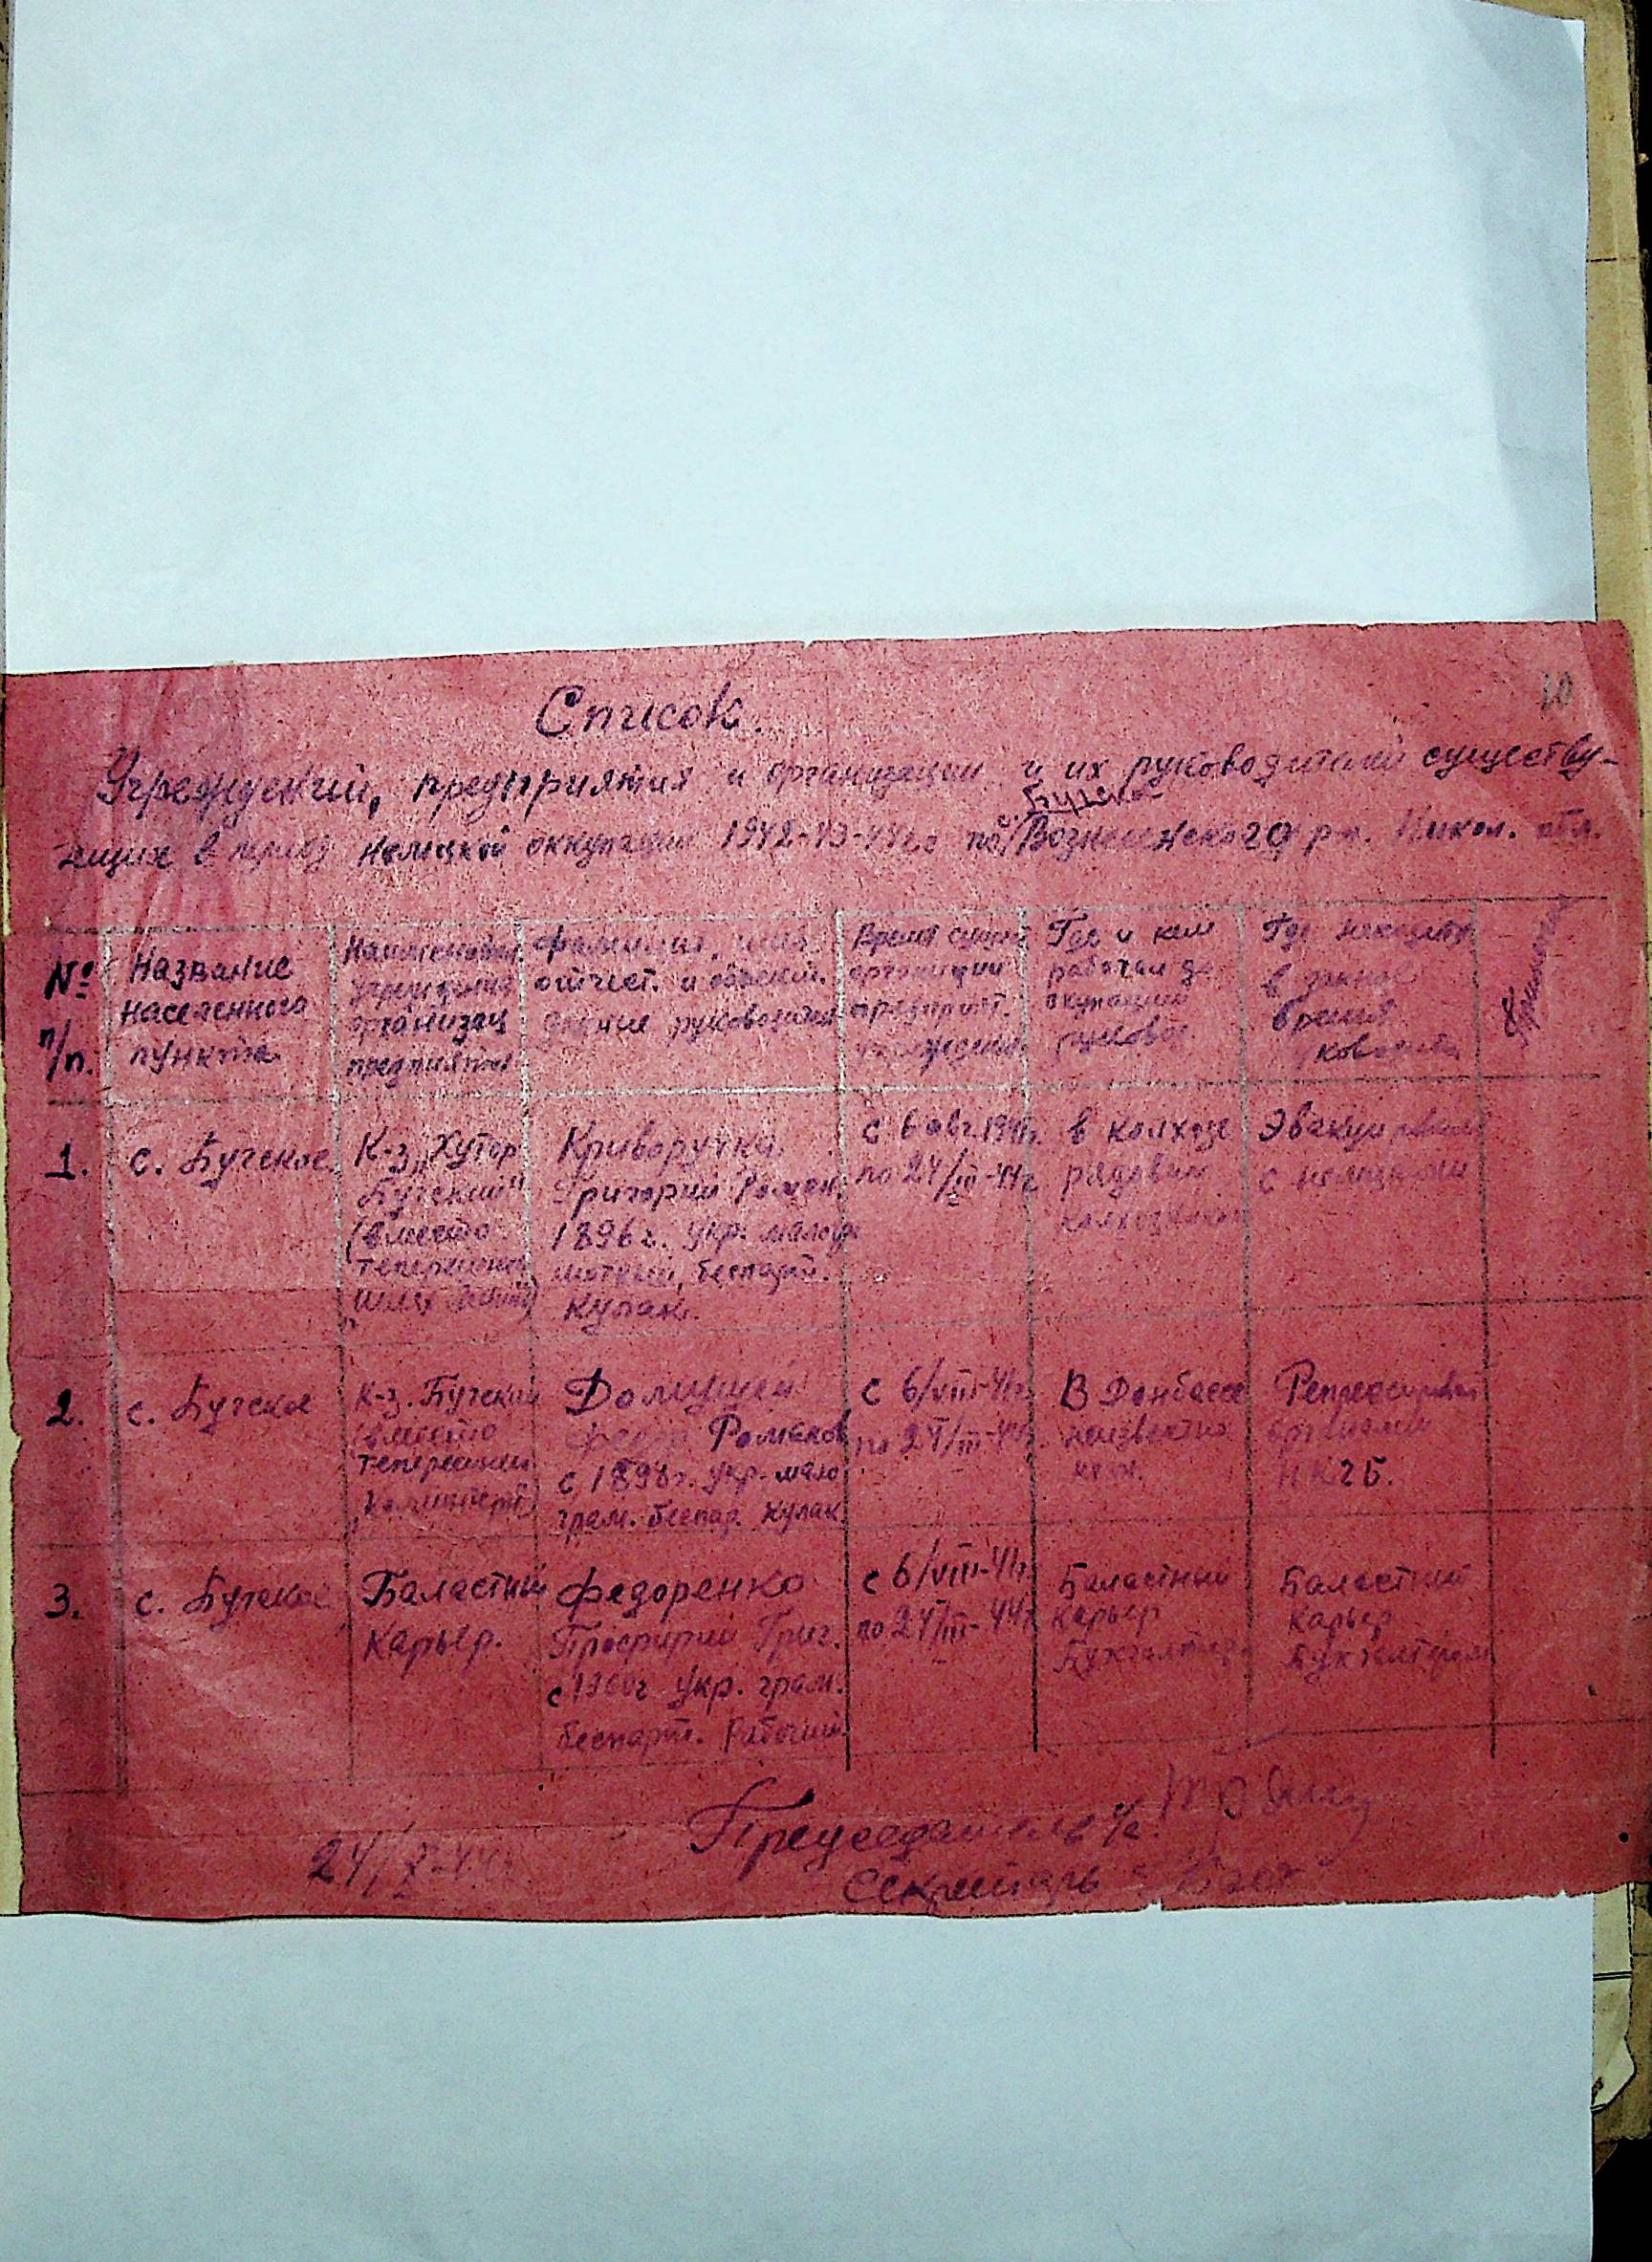 10
Список.
Учреждений, предприятия и организации и их руководители существу-
с. Бугское
ющих в период немецкой оккупации 1942-43-44гг по Вознесенского р-н. Никол. обл.
№ п/п.
Название
населенного
пункта
Наименован.
учреждения
организац
предприятия
Фамилия, имя
отчест. и
руководителя
Время сущест.
организации
предприят.
учреждения
Где и кем
работал до
окупации
руковод.
Где находится
в данное
время
руководитель
Примечание
1.
с. Бугское
К-з „Хутор
Бугский"
(вместо
теперешнего
„Шлях Леніна")
Криворучка
Григорий Роман.
1896г. укр. малогра-
мотный, беспарт.
кулак.
с 6 авг. 1941г.
по 24/III-44г
в колхозе
рядовым
колхозником
Эвакуировал
с немцами
2.
с. Бугское
К-з. Бугский
(вместо
теперешний
„Коминтерн")
Федор Романов
с 1898г. укр. мало
грам. беспар. кулак
с 6/VIII-41г.
по 24/III-44г.
В Донбассе
неизвестно
кем.
Репресирован
органами
НКГБ.
3.
с. Бугское
Баластный
Карьер.
Федоренко
Профирий Григ.
с 1900г укр. грам.
беспарт. Рабочий
с 6/VIII-41г.
по 24/III-44г.
Баластный
карьер
Бухгалтером
Баластный
Карьер
Бухгалтером
Председатель с/с.
24/X-44г.
Секретарь